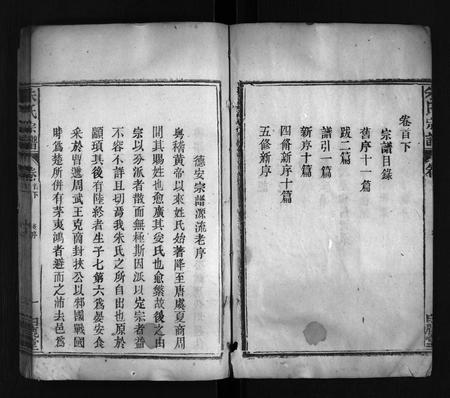 卷首下
宗譜目錄
舊序十一篇
跋二篇
譜引一篇
新序十篇
四脩新序十篇
五修新序
德安宗譜源流老序
粤稽黃帝以來姓氏始著降至唐虞夏商周
間其賜姓也愈廣其受氏也愈繁故後之由
宗以分派者散而無極斯因派以定宗者益
不容不詳且切焉我朱氏之所自出也原於
顓頊其後有陸終者生子七第六爲晏安食
采於曹邑周武王克商封挾公以邾國戰國
時爲楚所併有茅夷鴻者避而之沛去邑爲
朱氏宗譜
卷首下